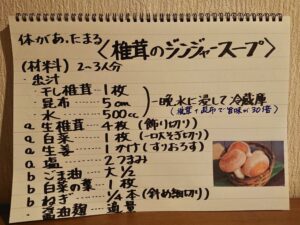 体があたたまる
〈椎茸のジンジャースープ〉
(材料) 2~3人分
・出汁
・干し椎茸……1枚
・昆布……5cm
・水……500cc
一晩水に浸して冷蔵庫
(椎茸+昆布で旨味が30倍)
a 生椎茸……4枚 (飾り切り)
a 白菜……1枚 (一口大そぎ切り)
a 生姜……1かけ (すりおろす)
a 塩……2つまみ
b ごま油……大1/2
b 白菜の葉……1枚
b ねぎ……1/4本 (斜め細切り)
・醤油麹……適量